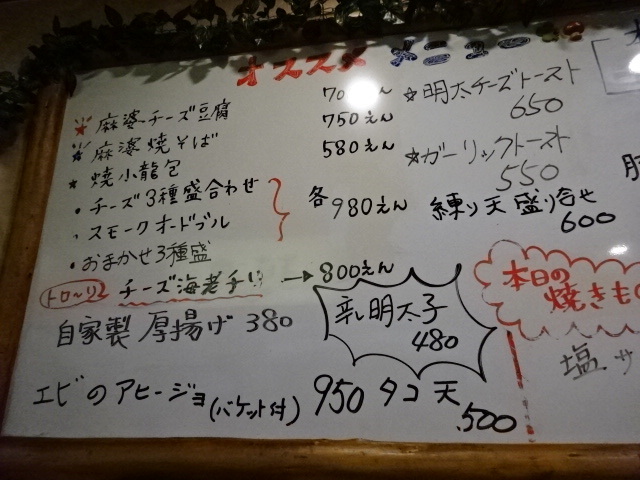 オススメ メニュー
★麻婆チーズ豆腐
★麻婆焼そば 750えん
★焼小龍包 580えん
・チーズ3種盛合わせ
・スモークオードブル
・おまかせ3種盛
各980えん
トロ〜リ チーズ海老チリ → 800えん
自家製 厚揚げ 380
エビのアヒージョ(バケット付) 950
☆明太チーズトースト
650
☆ガーリックトースト
550
練り天盛り合せ
600
辛明太子
480
タコ天
500
本日の
焼きもの
塩サ